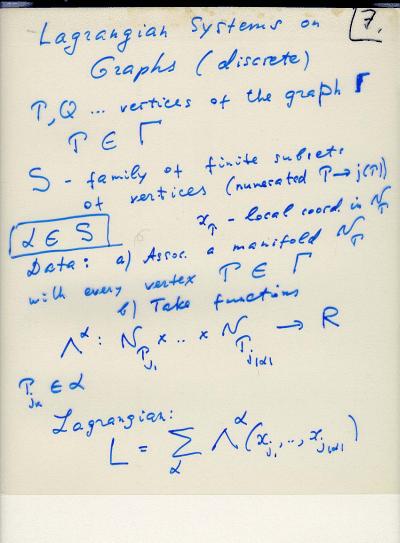 7.
Lagrangian Systems on
Graphs (discrete)
P, Q ... vertices of the graph Γ
P ∈ Γ
S - family of finite subsets
of vertices (numerated P → j(P))
x_P - local coord. in N_P
α ∈ S
Data: a) Assoc. a manifold N_P
with every vertex P ∈ Γ
b) Take functions
Λ^α : N_{P_{j_1}} x .. x N_{P_{j_{|α|}}} → R
P_{j_k} ∈ α
Lagrangian:
L = Σ_α Λ^α (x_{j_1}, .., x_{j_{|α|}})